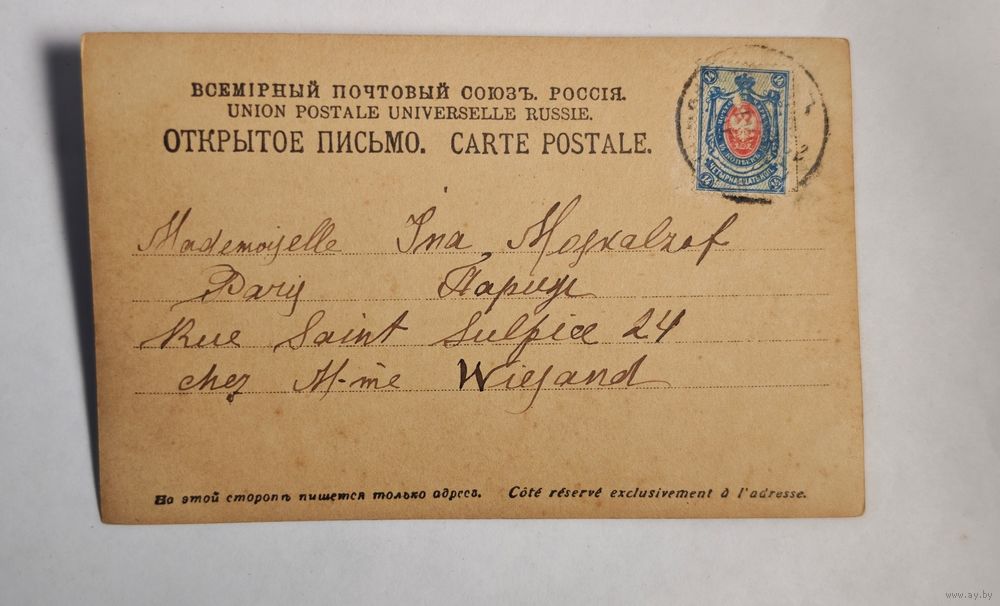 ВСЕМІРНЫЙ ПОЧТОВЫЙ СОЮЗЪ. РОССІЯ.
UNION POSTALE UNIVERSELLE RUSSIE.
ОТКРЫТОЕ ПИСЬМО. CARTE POSTALE.
14 14
ЧЕТЫРНАДЦАТЬ КОП.
14 14
Mademoyelle Ina Moskalzof
Paris Париж
Rue Saint Sulpice 24
chez M-me Wiegand
На этой сторонѣ пишется только адресъ. Côté réservé exclusivement à l'adresse.
www.ay.by